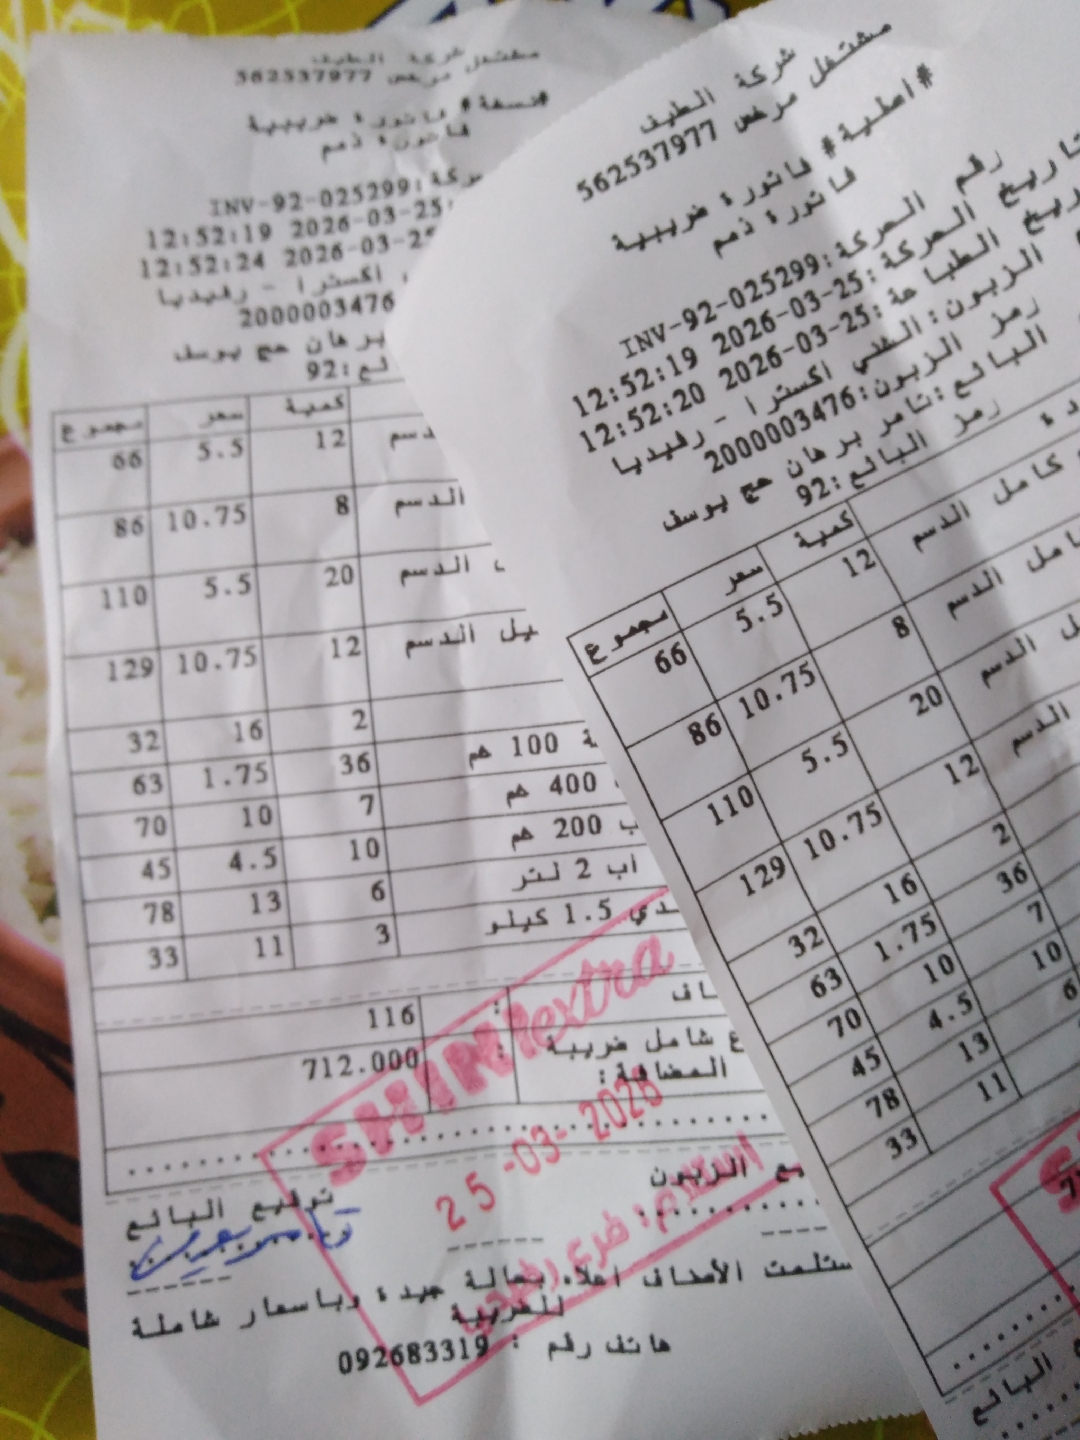 شركة الطيف
مشتغل مرخص 562537977
#نسخة# فاتورة ضريبية
فاتورة ذمم
ركة:INV-92-025299
2026-03-25 12:52:19
2026-03-25 12:52:24
اكسترا - رفيديا
2000003476
برهان حج يوسف
ئع:92
كمية سعر مجموع
دسم 12 5.5 66
الدسم 8 10.75 86
الدسم 20 5.5 110
يل الدسم 12 10.75 129
2 16 32
ة 100 غم 36 1.75 63
400 غم 7 10 70
ب 200 غم 10 4.5 45
اب 2 لتر 6 13 78
دي 1.5 كيلو 3 11 33
ـاف : 116
ع شامل ضريبة : 712.000
المضافة:
SHINI extra
25-03-2026
استلام: فرع رفيديا
توقيع البائع
يع الزبون
ستلمت الأصناف اعلاه بحالة جيدة وباسعار شاملة
للضريبة
هاتف رقم : 092683319
شركة الطيف
مشتغل مرخص 562537977
#اصلية# فاتورة ضريبية
فاتورة ذمم
رقم الحركة:INV-92-025299
تاريخ الحركة:2026-03-25 12:52:19
ريخ الطباعة:2026-03-25 12:52:20
الزبون:الشني اكسترا - رفيديا
رمز الزبون:2000003476
البائع:تامر برهان حج يوسف
رمز البائع:92
كمية سعر مجموع
كامل الدسم 12 5.5 66
امل الدسم 8 10.75 86
ل الدسم 20 5.5 110
الدسم 12 10.75 129
2 16 32
36 1.75 63
7 10 70
10 4.5 45
6 13 78
11 33
البائع